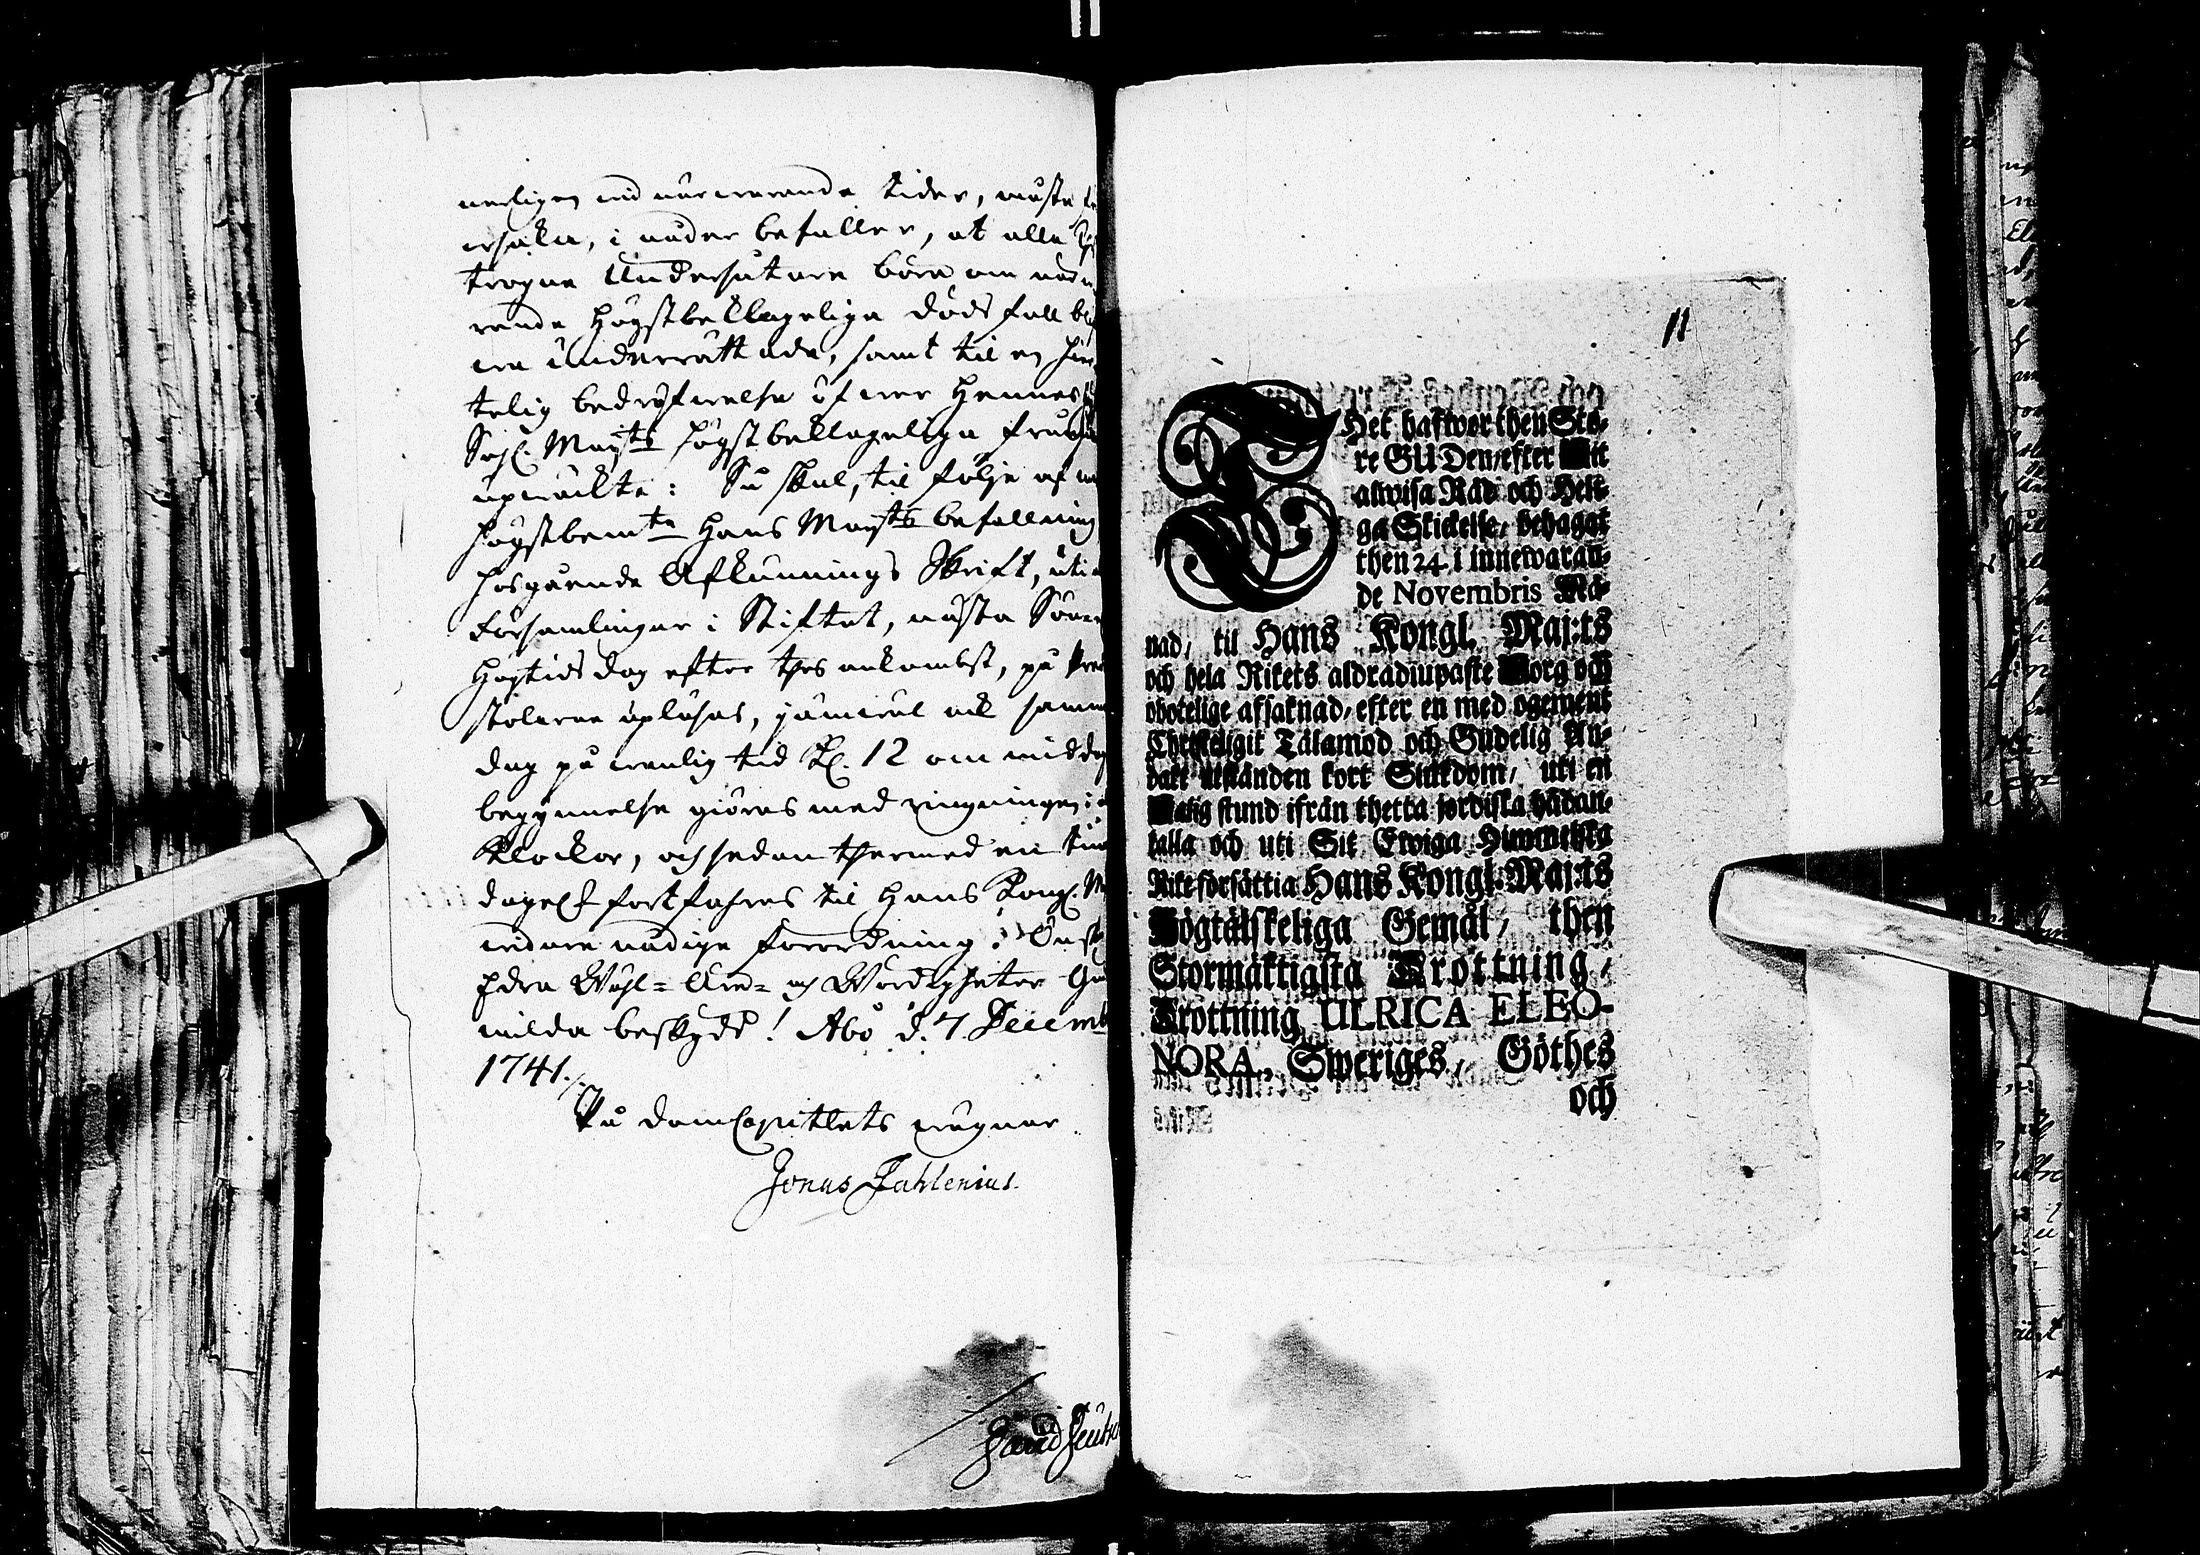 nerligen vid närwarande tider, måste
orsaken, i nåder befaller, at alla
trogne Undersåtare böra om
rande Högstbeklagelige dödsfall
wa underrättade, samt til en
telig bedröfwelse öfwer Hennes
Sal. Mayts högstbeklagelige
upwäckte: Så skal, til följe af
högstbemte Hans Mayts befallning
hosgående Afkunnings Skrift, uti
Församlingar i Stiftet, nästa Sönn
Högtids dag efter thes ankombst, på Pred
stolarne upläsas, jämwäl ock samma
dag på wanlig tid Kl. 12 om middag
begynnelse giöras med ringningen i
Klockor, och sedan thermed en tima
dagel. fortfahres til Hans Kongl. M
widare nådige förordning. Önsk
Edra Wähl-Ärd- och Wördigheter Gu
milda beskydd! Åbo d. 7. Decemb
1741./.
På DomCapitlets wägnar
Jonas Fahlenius.
11
THet hafwer then Sto-
re GUDen, efter Sit
alwisa Råd och Heli-
ga Skickelse, behagat
then 24. i innewaran-
de Novembris Må-
nad, til Hans Kongl. Maj:ts
och hela Rikets aldradiupaste Sorg och
obotelige afsaknad, efter en med ogement
Christeligit Tålamod och Gudelig An-
dakt utstånden kort Siukdom, uti en
Salig stund ifrån thetta jordiska hädan-
kalla och uti Sit Ewiga Himmelska
Rike försättia Hans Kongl. Maj:ts
Högtälskeliga Gemål, then
Stormäktigsta Drottning,
Drottning ULRICA ELEO-
NORA, Sweriges, Göthes
och